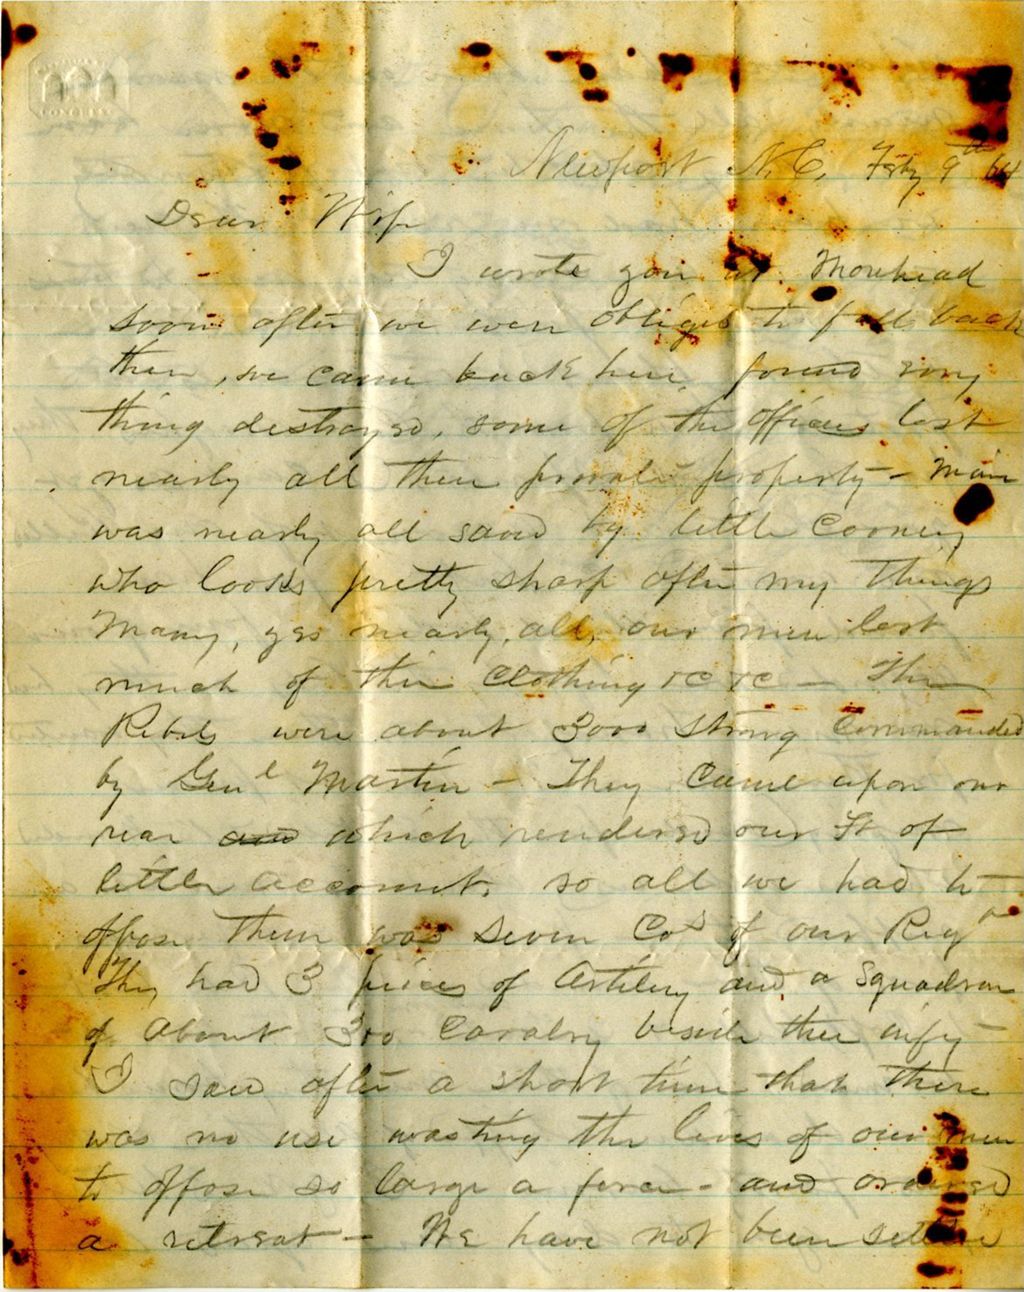 CONGRESS
Newport N.C. Feby 9th 64
Dear Wife
I wrote you at Morehead
soon after we were obliged to fall back
then, we came back here, found every
thing destroyed, some of the officers lost
nearly all their private property - Mine
was nearly all saved by little Cooney
who looks pretty sharp after my things
Many, yes nearly, all, our men lost
much of their Clothing &C &C - The
Rebels were about 3000 strong Commanded
by Genl Martin - They Came upon our
rear and which rendered our Ft of
little account, so all we had to
oppose them was seven Cos of our Regt
They had 3 pieces of Artilery and a Squadron
of about 300 Cavalry beside their infy -
I saw after a short time that there
was no use wasting the lives of our men
to oppose so large a force - and ordered
a retreat - We have not been settled